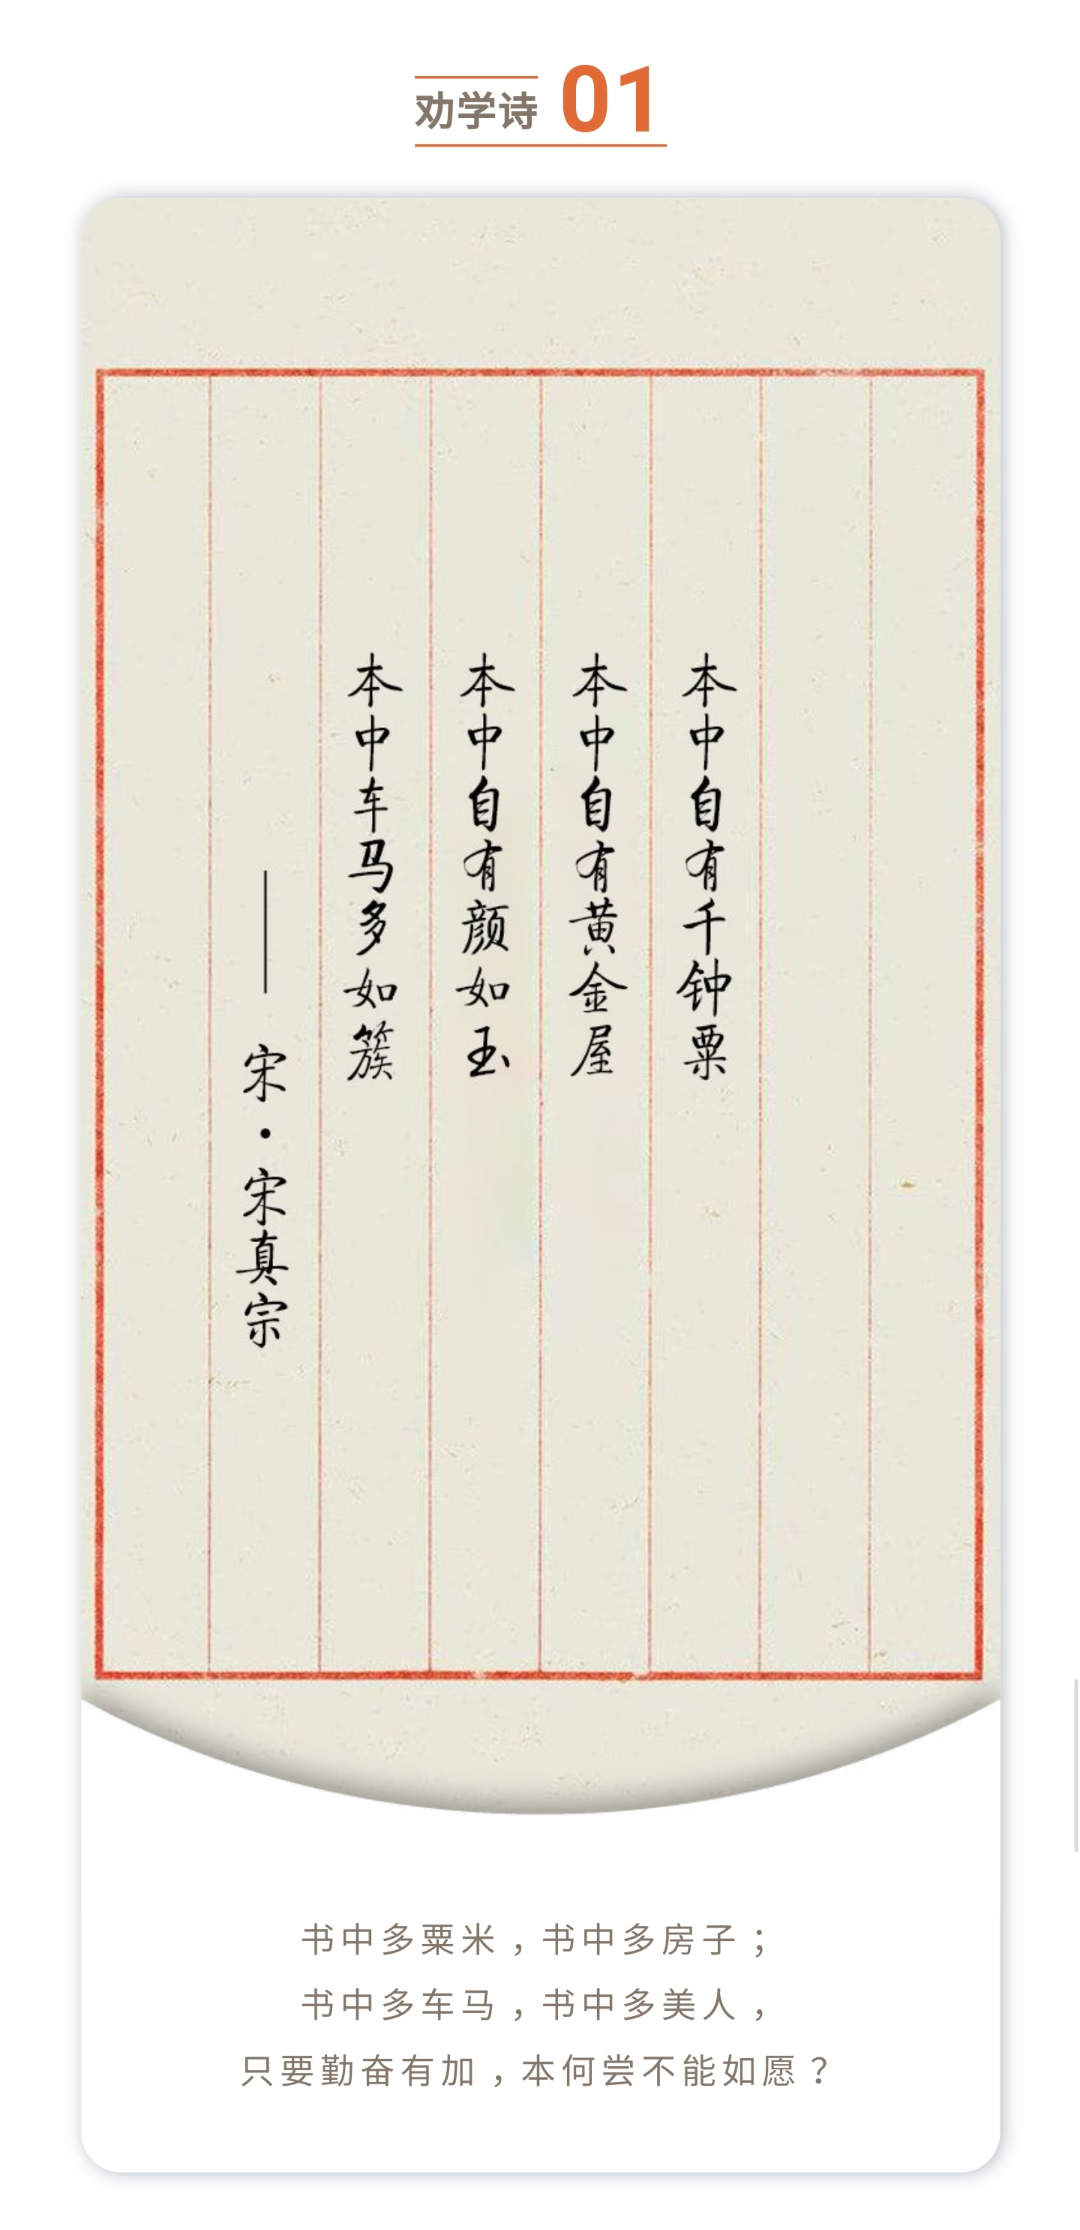 劝学诗 01
本中自有千钟粟
本中自有黄金屋
本中自有颜如玉
本中车马多如簇
—— 宋·宋真宗
书中多粟米，书中多房子；
书中多车马，书中多美人，
只要勤奋有加，本何尝不能如愿？